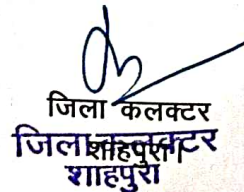 जिला कलक्टर
शाहपुरा।
जिला कलक्टर
शाहपुरा